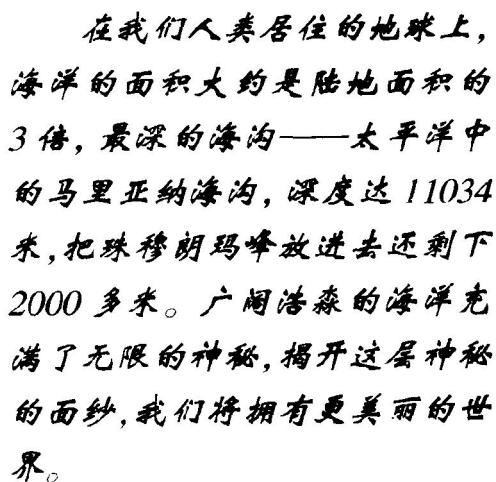 在我们人类居住的地球上，
海洋的面积大约是陆地面积的
3倍，最深的海沟——太平洋中
的马里亚纳海沟，深度达11034
米，把珠穆朗玛峰放进去还剩下
2000多米。广阔浩淼的海洋充
满了无限的神秘，揭开这层神秘
的面纱，我们将拥有更美丽的世
界。